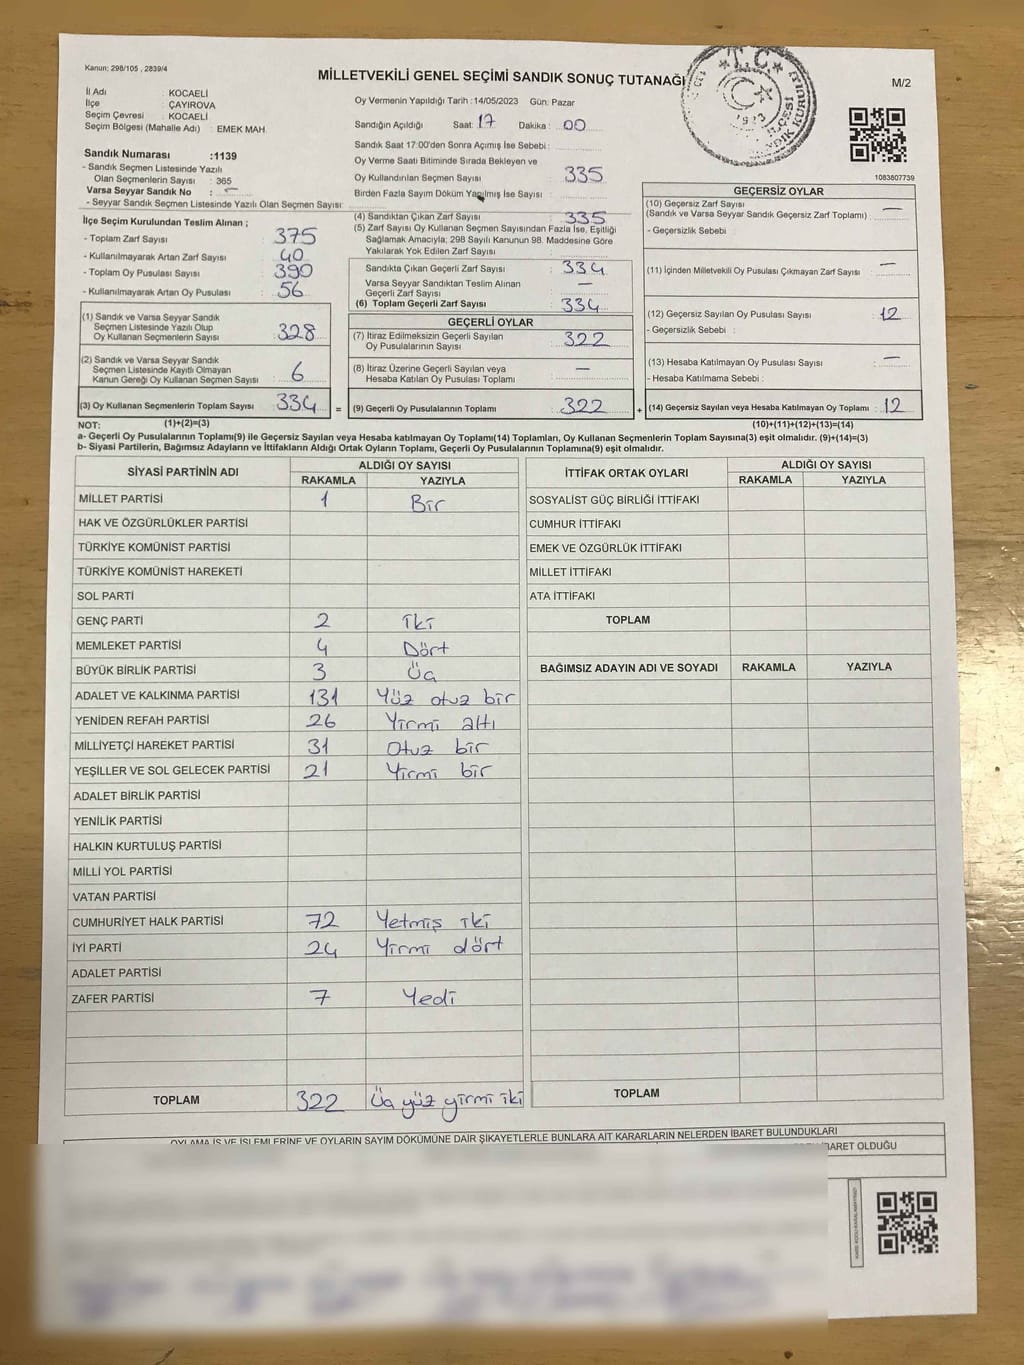 Kanun; 298/105 , 2839/4
MİLLETVEKİLİ GENEL SEÇİMİ SANDIK SONUÇ TUTANAĞI
M/2
T.C
1923
İl Adı : KOCAELİ
İlçe : ÇAYIROVA
Seçim Çevresi : KOCAELİ
Seçim Bölgesi (Mahalle Adı) : EMEK MAH.
Oy Vermenin Yapıldığı Tarih :14/05/2023 Gün: Pazar
Sandığın Açıldığı Saat: 17 Dakika : 00
Sandık Saat 17:00'den Sonra Açımış İse Sebebi :
Oy Verme Saati Bitiminde Sırada Bekleyen ve
Oy Kullandırılan Seçmen Sayısı : 335
Birden Fazla Sayım Döküm Yapılmış İse Sayısı :
1083807739
Sandık Numarası :1139
- Sandık Seçmen Listesinde Yazılı
Olan Seçmenlerin Sayısı : 365
Varsa Seyyar Sandık No : -
- Seyyar Sandık Seçmen Listesinde Yazılı Olan Seçmen Sayısı:
İlçe Seçim Kurulundan Teslim Alınan ;
- Toplam Zarf Sayısı : 375
- Kullanılmayarak Artan Zarf Sayısı : 40
- Toplam Oy Pusulası Sayısı : 390
- Kullanılmayarak Artan Oy Pusulası : 56
(1) Sandık ve Varsa Seyyar Sandık
Seçmen Listesinde Yazılı Olup
Oy Kullanan Seçmenlerin Sayısı : 328
(2) Sandık ve Varsa Seyyar Sandık
Seçmen Listesinde Kayıtlı Olmayan
Kanun Gereği Oy Kullanan Seçmen Sayısı : 6
(3) Oy Kullanan Seçmenlerin Toplam Sayısı : 334 =
(4) Sandıktan Çıkan Zarf Sayısı : 335
(5) Zarf Sayısı Oy Kullanan Seçmen Sayısından Fazla İse, Eşitliği
Sağlamak Amacıyla; 298 Sayılı Kanunun 98. Maddesine Göre
Yakılarak Yok Edilen Zarf Sayısı :
Sandıkta Çıkan Geçerli Zarf Sayısı : 334
Varsa Seyyar Sandıktan Teslim Alınan
Geçerli Zarf Sayısı : —
(6) Toplam Geçerli Zarf Sayısı : 334
GEÇERLİ OYLAR
(7) İtiraz Edilmeksizin Geçerli Sayılan
Oy Pusulalarının Sayısı : 322
(8) İtiraz Üzerine Geçerli Sayılan veya
Hesaba Katılan Oy Pusulası Toplamı : —
(9) Geçerli Oy Pusulalarının Toplamı : 322 +
GEÇERSİZ OYLAR
(10) Geçersiz Zarf Sayısı
(Sandık ve Varsa Seyyar Sandık Geçersiz Zarf Toplamı) : —
- Geçersizlik Sebebi :
(11) İçinden Milletvekili Oy Pusulası Çıkmayan Zarf Sayısı : —
(12) Geçersiz Sayılan Oy Pusulası Sayısı : 12
- Geçersizlik Sebebi :
(13) Hesaba Katılmayan Oy Pusulası Sayısı : —
- Hesaba Katılmama Sebebi :
(14) Geçersiz Sayılan veya Hesaba Katılmayan Oy Toplamı : 12
NOT: (1)+(2)=(3) (10)+(11)+(12)+(13)=(14)
a- Geçerli Oy Pusulalarının Toplamı(9) ile Geçersiz Sayılan veya Hesaba katılmayan Oy Toplamı(14) Toplamları, Oy Kullanan Seçmenlerin Toplam Sayısına(3) eşit olmalıdır. (9)+(14)=(3)
b- Siyasi Partilerin, Bağımsız Adayların ve İttifakların Aldığı Ortak Oyların Toplamı, Geçerli Oy Pusulalarının Toplamına(9) eşit olmalıdır.
SİYASİ PARTİNİN ADI ALDIĞI OY SAYISI
RAKAMLA YAZIYLA
MİLLET PARTİSİ 1 Bir
HAK VE ÖZGÜRLÜKLER PARTİSİ
TÜRKİYE KOMÜNİST PARTİSİ
TÜRKİYE KOMÜNİST HAREKETİ
SOL PARTİ
GENÇ PARTİ 2 iki
MEMLEKET PARTİSİ 4 Dört
BÜYÜK BİRLİK PARTİSİ 3 Üç
ADALET VE KALKINMA PARTİSİ 131 Yüz otuz bir
YENİDEN REFAH PARTİSİ 26 Yirmi altı
MİLLİYETÇİ HAREKET PARTİSİ 31 Otuz bir
YEŞİLLER VE SOL GELECEK PARTİSİ 21 Yirmi bir
ADALET BİRLİK PARTİSİ
YENİLİK PARTİSİ
HALKIN KURTULUŞ PARTİSİ
MİLLİ YOL PARTİSİ
VATAN PARTİSİ
CUMHURİYET HALK PARTİSİ 72 Yetmiş iki
İYİ PARTİ 24 Yirmi dört
ADALET PARTİSİ
ZAFER PARTİSİ 7 Yedi
TOPLAM 322 Üç yüz yirmi iki
İTTİFAK ORTAK OYLARI ALDIĞI OY SAYISI
RAKAMLA YAZIYLA
SOSYALİST GÜÇ BİRLİĞİ İTTİFAKI
CUMHUR İTTİFAKI
EMEK VE ÖZGÜRLÜK İTTİFAKI
MİLLET İTTİFAKI
ATA İTTİFAKI
TOPLAM
BAĞIMSIZ ADAYIN ADI VE SOYADI RAKAMLA YAZIYLA
TOPLAM
OYLAMA İŞ VE İŞLEMLERİNE VE OYLARIN SAYIM DÖKÜMÜNE DAİR ŞİKAYETLERLE BUNLARA AİT KARARLARIN NELERDEN İBARET BULUNDUKLARI
İBARET OLDUĞU